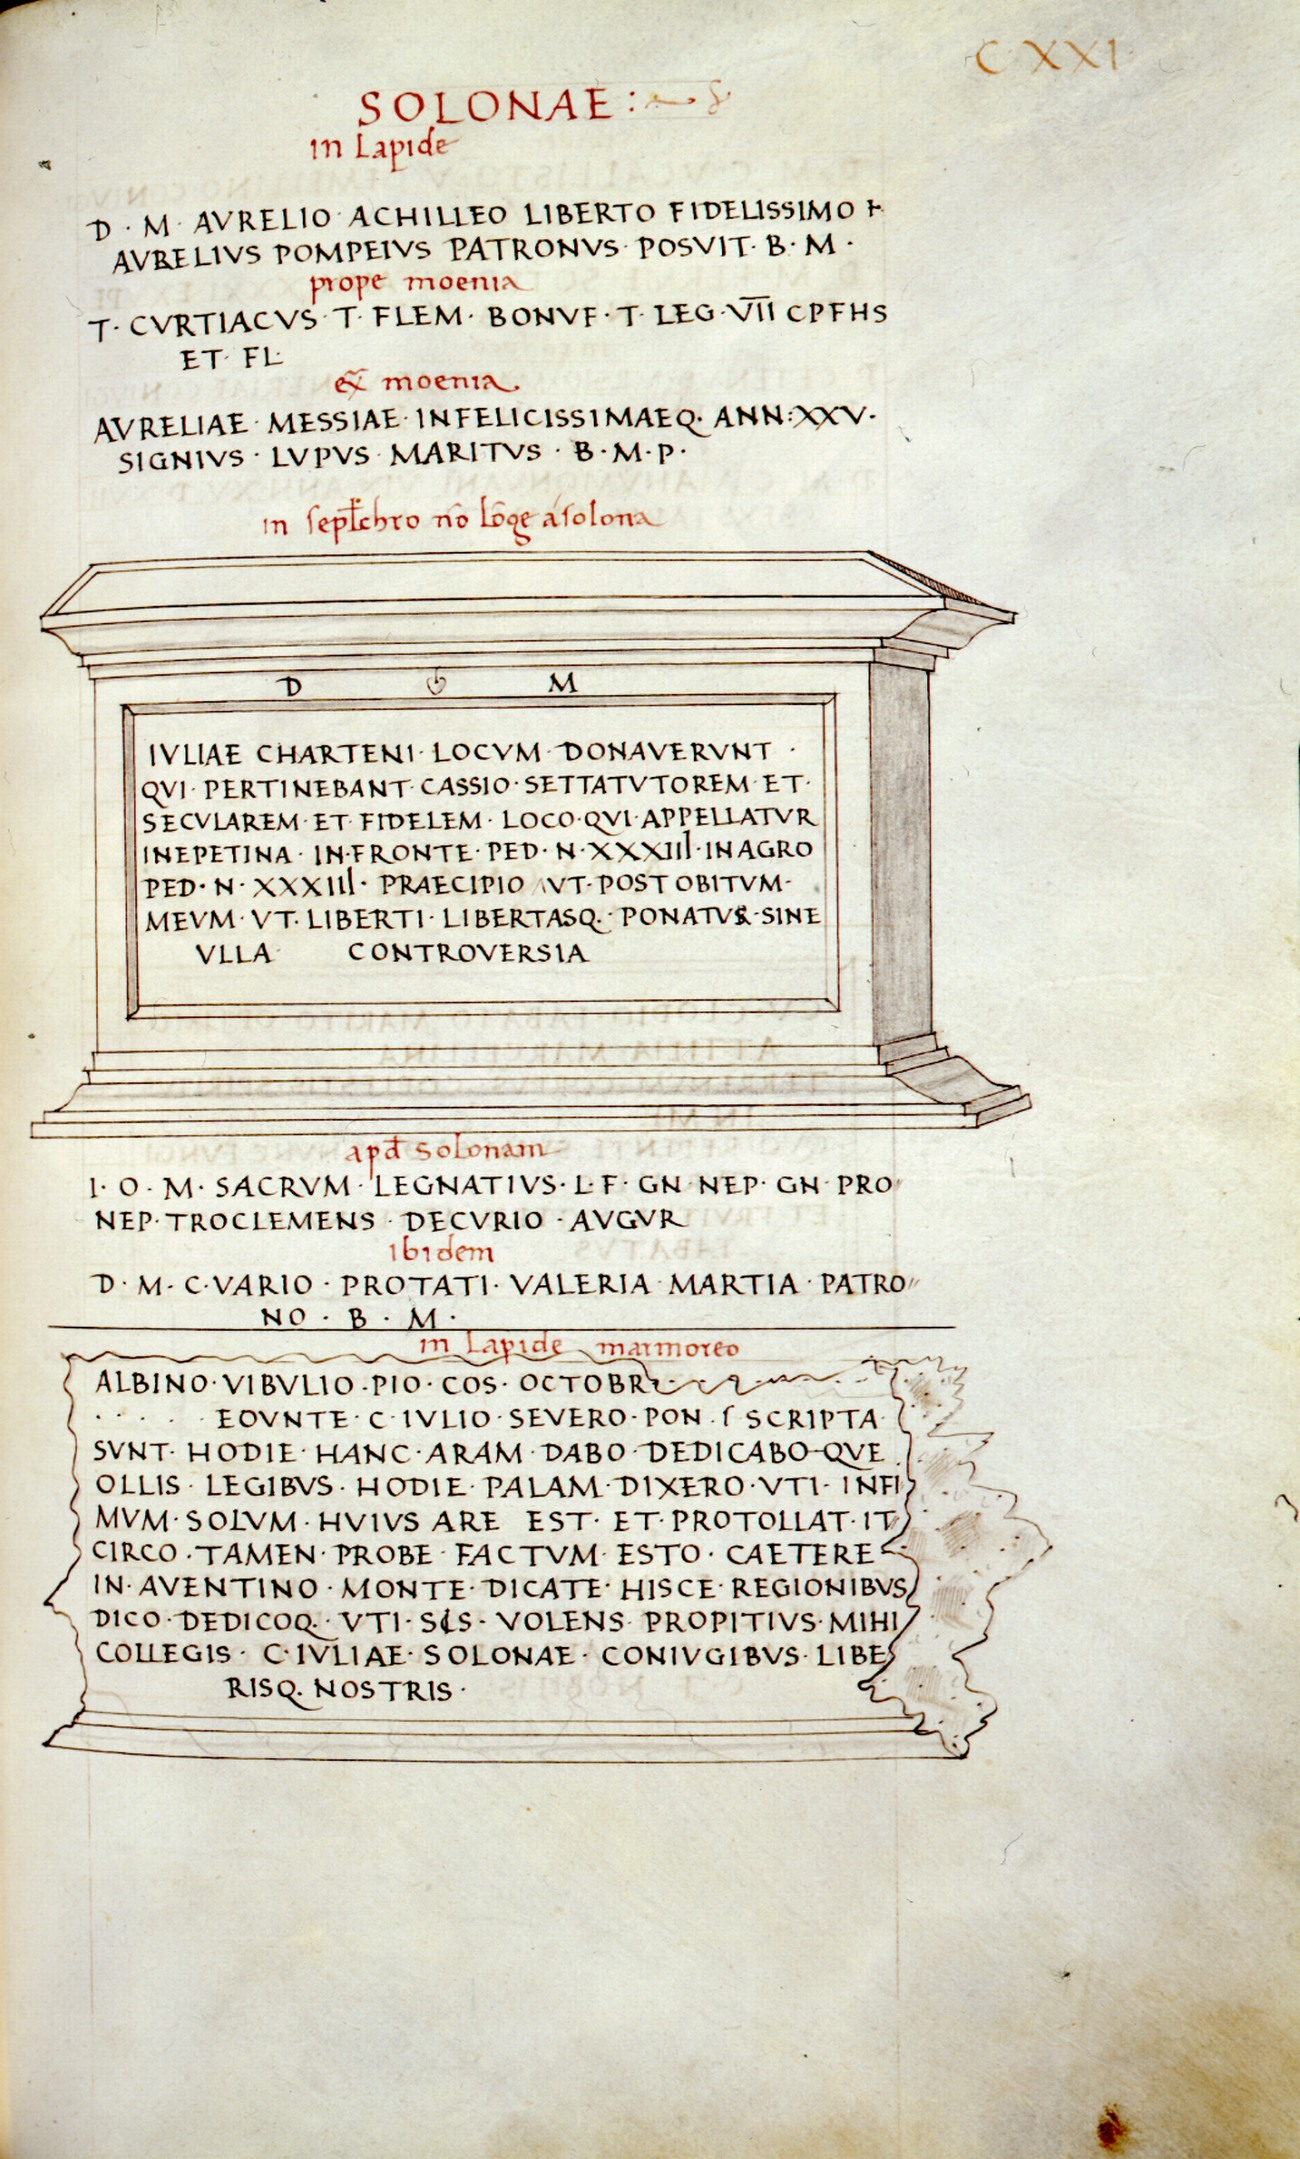 C XXI
SOLONAE :
in Lapide
D · M · AVRELIO · ACHILLEO LIBERTO FIDELISSIMO
AVRELIVS POMPEIVS PATRONVS · POSVIT · B · M ·
prope moenia
T · CVRTIACVS · T · FLEM · BONVF · T · LEG · V̅I̅I̅ CPFHS
ET · FL
ex moenia
AVRELIAE · MESSIAE · INFELICISSIMAEQ · ANN : XXV ·
SIGNIVS · LVPVS MARITVS · B · M · P ·
in seplchro nō lōge a solona
D M
IVLIAE CHARTENI · LOCVM · DONAVERVNT ·
QVI · PERTINEBANT · CASSIO · SETTATVTOREM · ET ·
SECVLAREM · ET · FIDELEM · LOCO · QVI · APPELLATVR
INEPETINA · IN · FRONTE · PED · N · XXXIII · INAGRO
PED · N · XXXIII · PRAECIPIO VT · POST OBITVM ·
MEVM · VT · LIBERTI · LIBERTASQ · PONATVR · SINE
VLLA CONTROVERSIA
apd solonam
I · O · M · SACRVM · LEGNATIVS · L · F · GN · NEP · GN · PRO
NEP · TROCLEMENS · DECVRIO · AVGVR
ibidem
D · M · C · VARIO · PROTATI · VALERIA · MARTIA · PATRO
NO · B · M ·
in Lapide marmoreo
ALBINO · VIBVLIO · PIO · COS · OCTOBR
· · · · · EOVNTE · C · IVLIO · SEVERO · PON · SCRIPTA
SVNT · HODIE · HANC · ARAM · DABO · DEDICABO QVE
OLLIS · LEGIBVS · HODIE · PALAM · DIXERO · VTI · INFI
MVM · SOLVM · HVIVS ARE EST · ET · PROTOLLAT · IT
CIRCO · TAMEN · PROBE · FACTVM · ESTO · CAETERE
IN · AVENTINO · MONTE · DICATE · HISCE · REGIONIBVS
DICO · DEDICOQ · VTI · SIS · VOLENS · PROPITIVS · MIHI
COLLEGIS · C · IVLIAE · SOLONAE · CONIVGIBVS · LIBE
RISQ · NOSTRIS ·